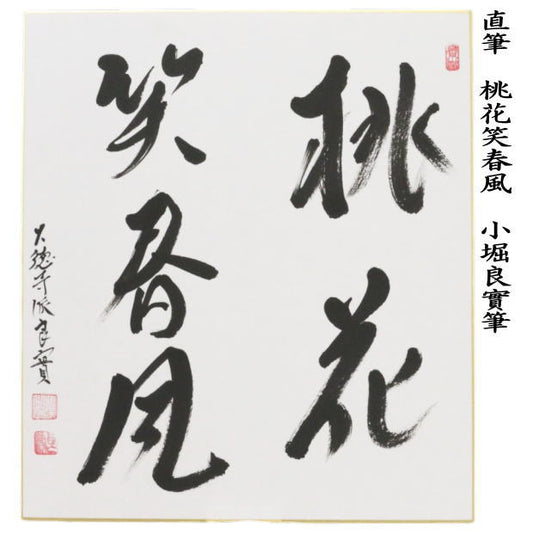 直筆 桃花笑春風 小堀良實筆
桃花
笑春風
大徳寺派良實